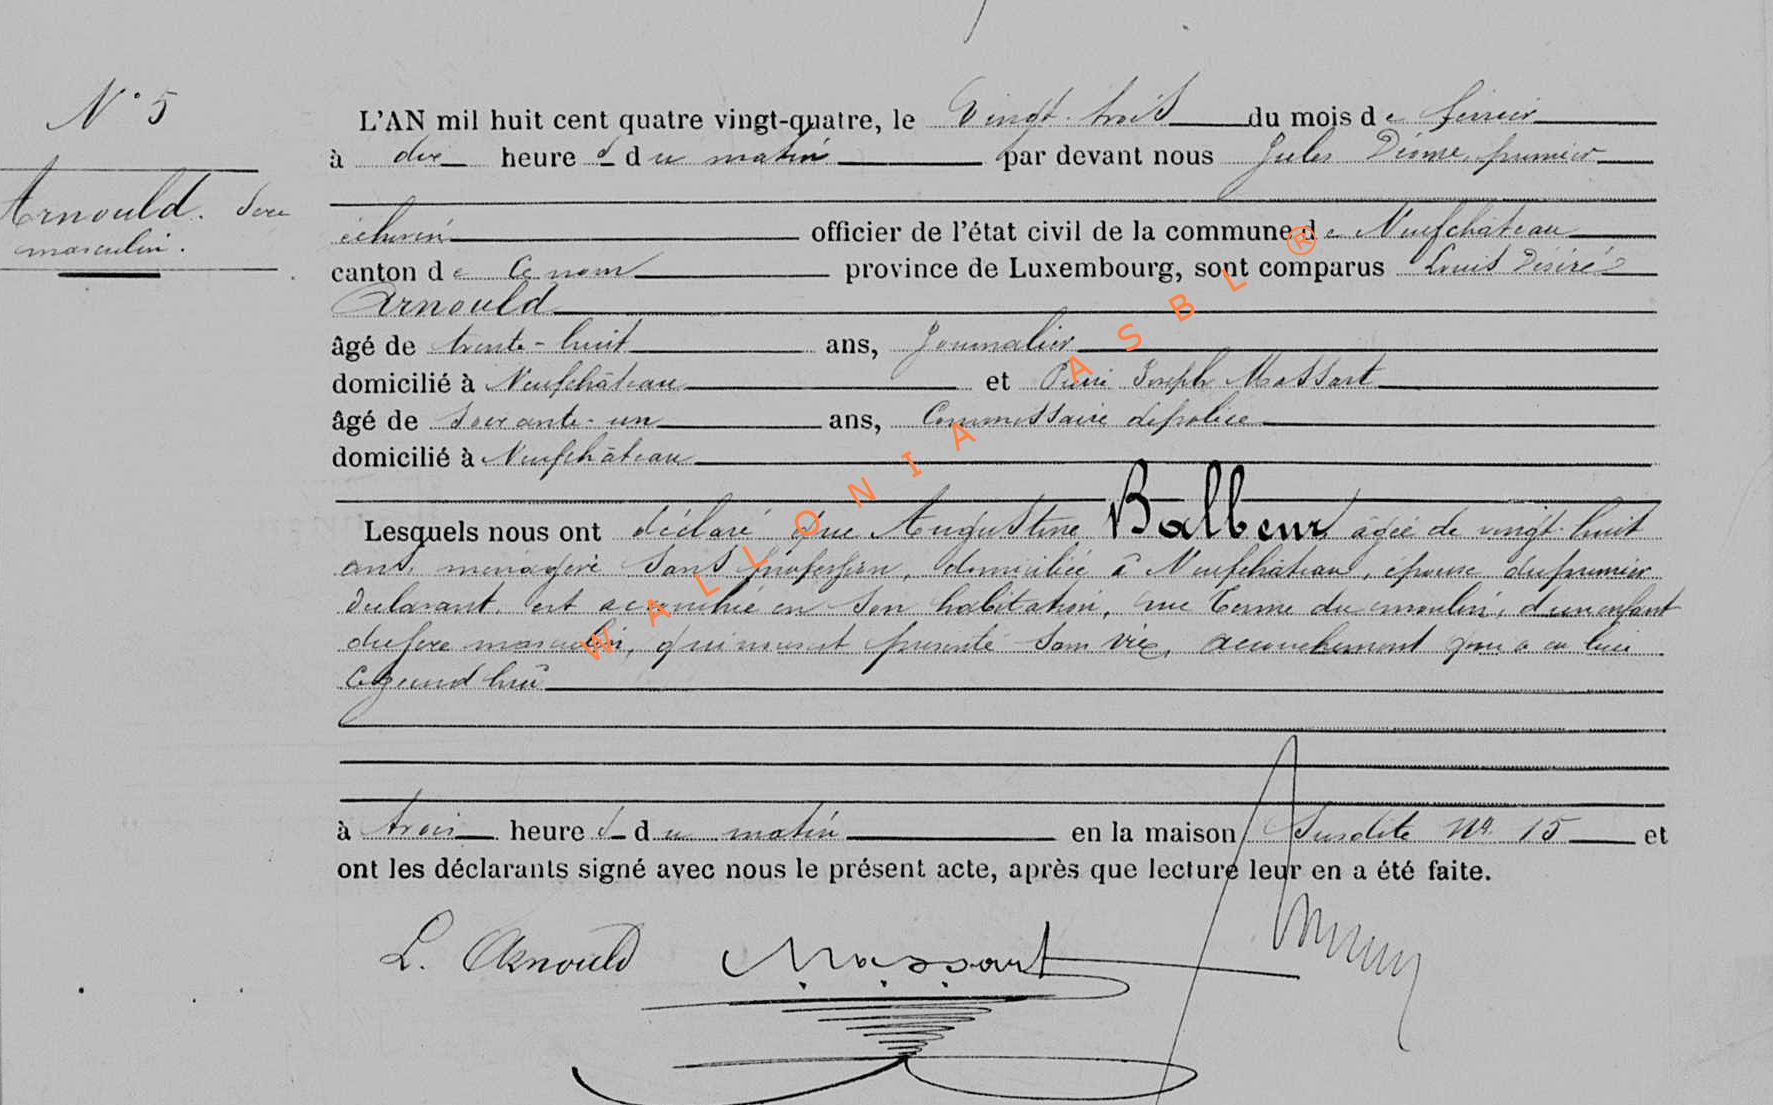 N° 5
Arnould. Sexe
masculin.
L'AN mil huit cent quatre vingt-quatre, le Vingt-trois du mois de février
à dix heures du matin par devant nous Jules premier
échevin officier de l'état civil de la commune de Neufchâteau
canton de ce nom province de Luxembourg, sont comparus Louis Désiré
Arnould
âgé de trente-huit ans, Journalier
domicilié à Neufchâteau et Pierre Joseph Massart
âgé de Soixante-un ans, Commissaire de police
domicilié à Neufchâteau
Lesquels nous ont déclaré que Augustine Balbeur, agée de vingt-huit
ans, ménagère sans profession, domiciliée à Neufchâteau, épouse du premier
déclarant, est accouchée en son habitation, rue du moulin, d'un enfant
du sexe masculin, qui nous est présenté sans vie, accouchement qui a eu lieu
ce jourd'hui
à trois heures du matin en la maison Susdite No 15 et
ont les déclarants signé avec nous le présent acte, après que lecture leur en a été faite.
L. Arnould Massart
WALLONIA ASBL ®